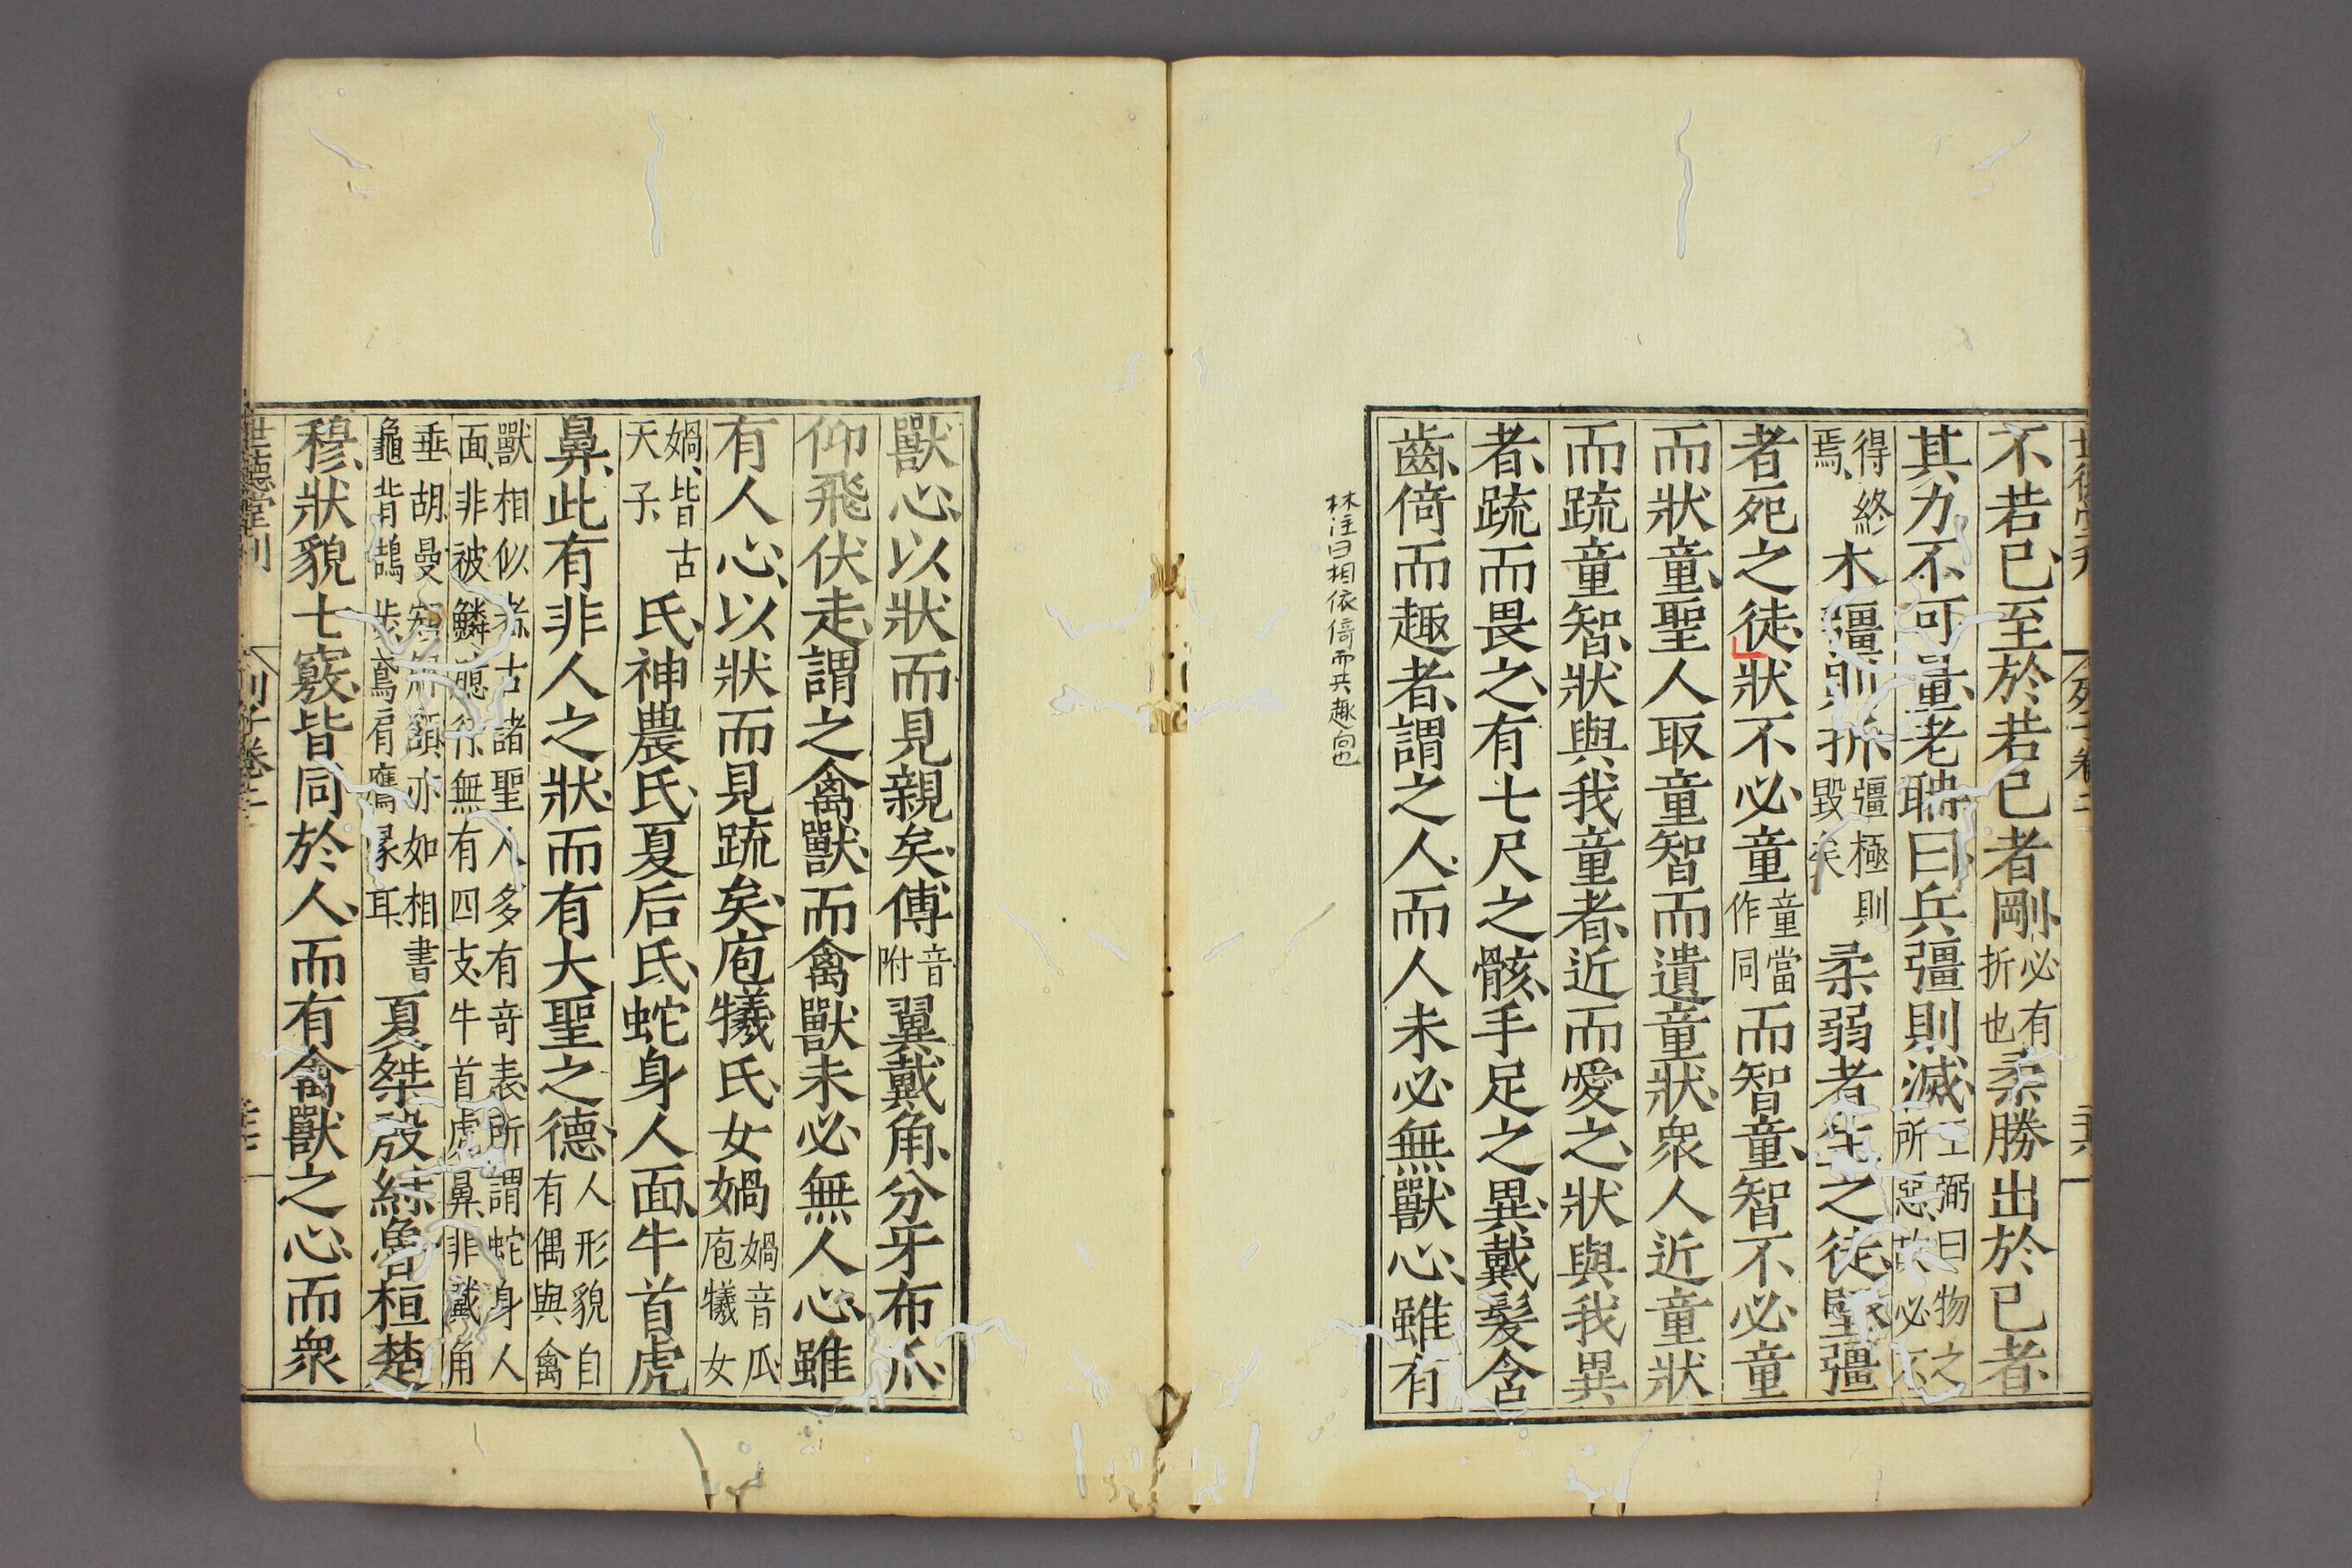 不若已至於若已者剛必有折也柔勝出於已者
其力不可量老聃曰兵彊則滅王弼曰物之所惡故必不
得終焉木彊則折彊極則毀矣柔弱者生之徒堅彊
者死之徒狀不必童童當作同而智童智不必童
而狀童聖人取童智而遺童狀衆人近童狀
而疏童智狀與我童者近而愛之狀與我異
者疏而畏之有七尺之骸手足之異戴髮含
齒倚而趣者謂之人而人未必無獸心雖有
林注曰相依倚而共趣向也
獸心以狀而見親矣傅音附翼戴角分牙布爪
仰飛伏走謂之禽獸而禽獸未必無人心雖
有人心以狀而見疏矣庖犧氏女媧媧音瓜庖犧女
媧皆古天子氏神農氏夏后氏蛇身人面牛首虎
鼻此有非人之狀而有大聖之德人形貌自有偶與禽
獸相似者古諸聖人多有竒表所謂蛇身人面非被鱗臆行無有四支牛首虎鼻非戴角
垂胡曼頞解頷亦如相書龜背鵠步鳶肩鷹喙耳夏桀殷紂魯桓楚
穆狀貌七竅皆同於人而有禽獸之心而衆
世德堂刊
列子卷二